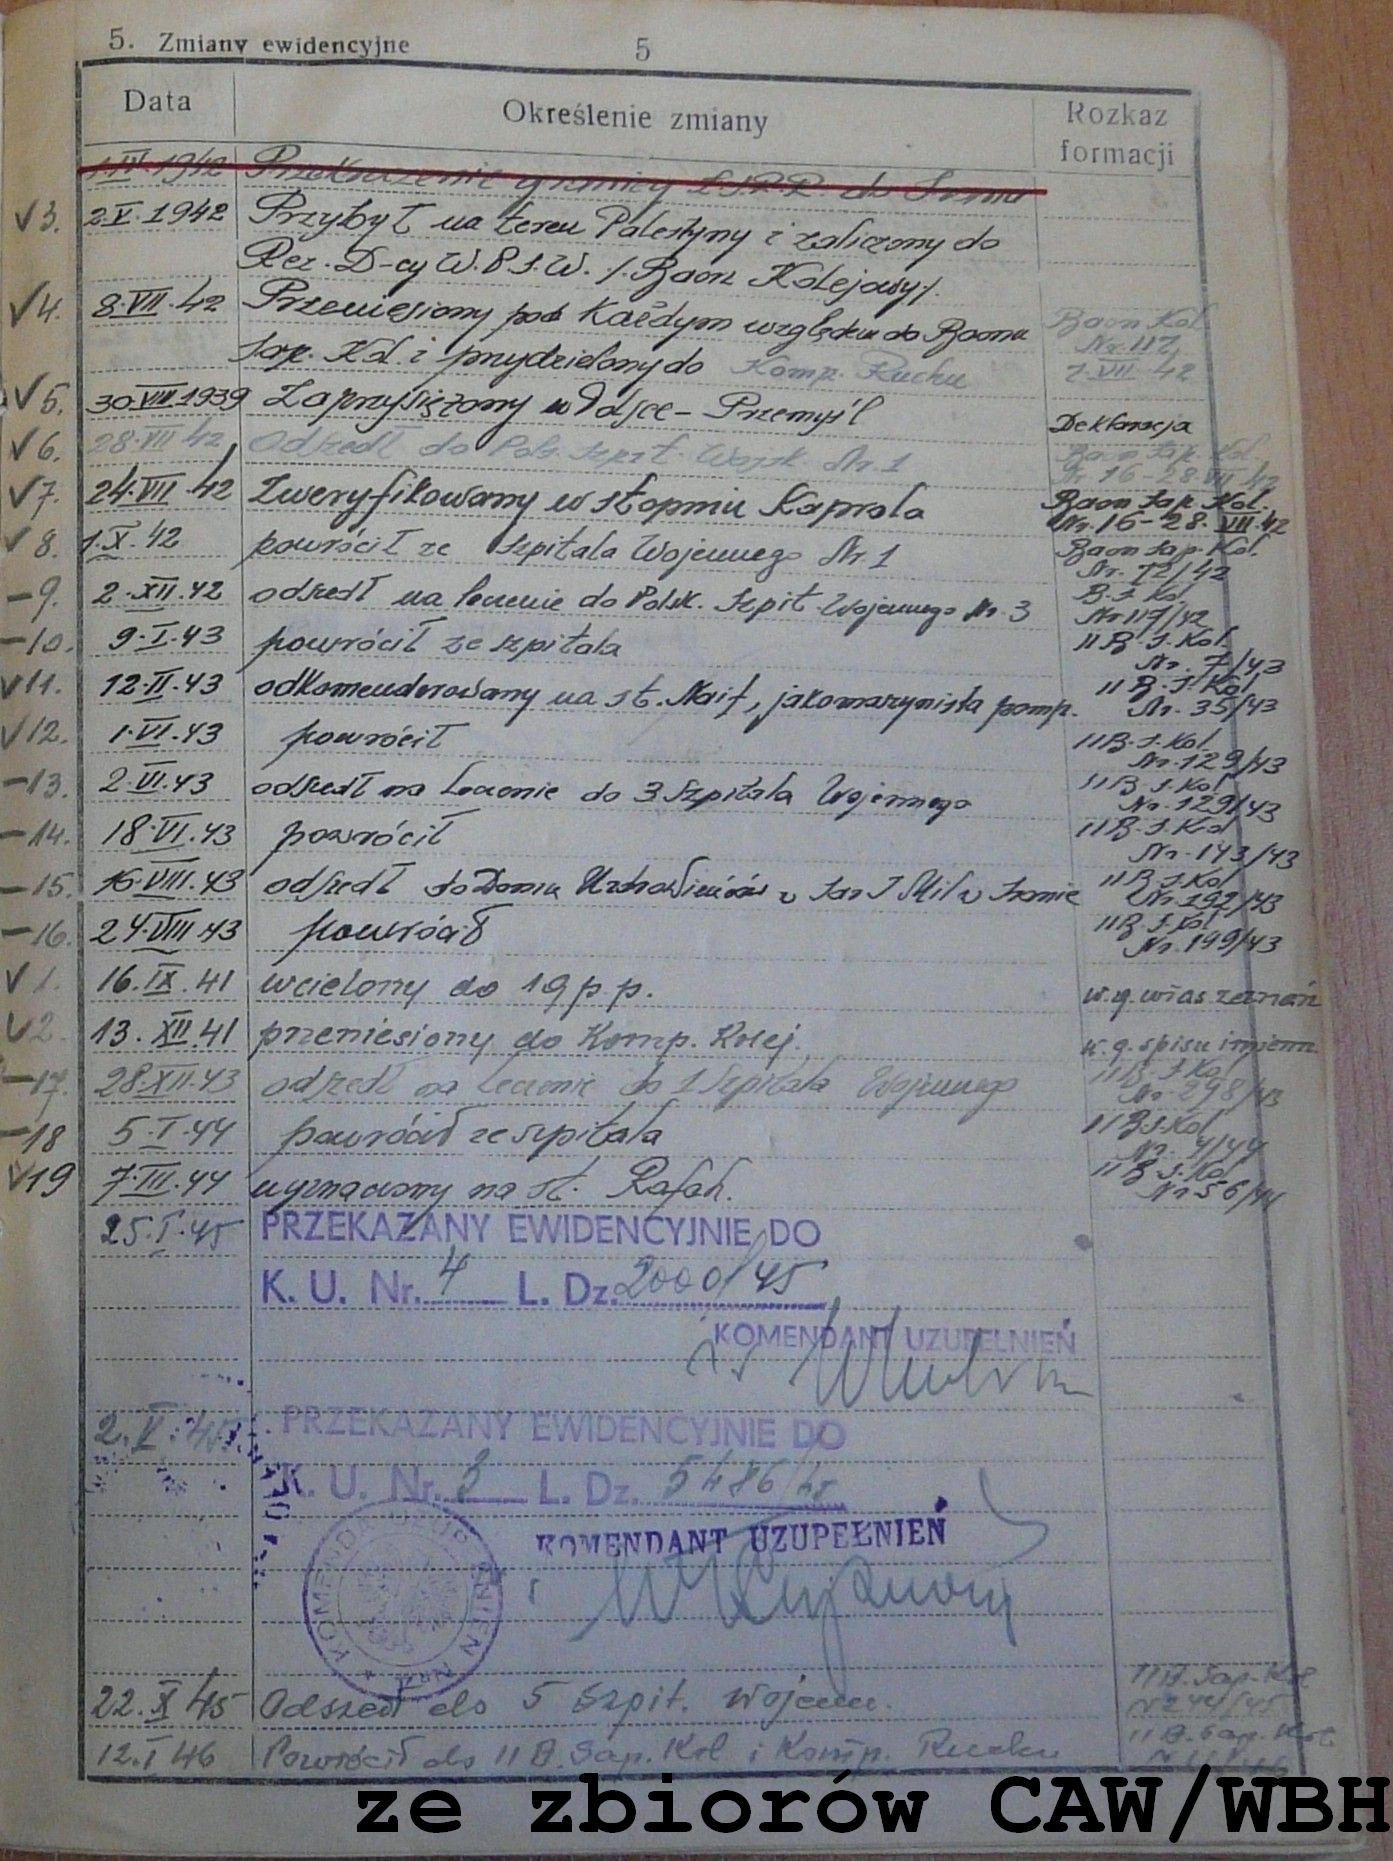 5. Zmiany ewidencyjne 5
Data Określenie zmiany Rozkaz formacji
1.IV.1942 Przekroczenie granicy Z.S.R.R. do Iranu
√3. 2.V.1942 Przybył na teren Palestyny i zaliczony do
Rez. D-cy W.P.S.W. /. Baon Kolejowy/.
√4. 8.VII.42 Przeniesiony pod każdym względem do Baonu Baon Kol.
Sap. Kol. i przydzielony do Komp. Ruchu Nr. 112
7.VII.42
√5. 30.VIII.1939 Zaprzysiężony w Polsce - Przemyśl Deklaracja
√6. 28.VII.42 Odszedł do Pols. Szpit. Wojsk. Nr. 1 Baon Sap. Kol.
Nr 16-28.VII.42
√7. 24.VII.42 Zweryfikowany w stopniu Kaprala Baon Sap. Kol.
Nr. 16-28.VIII.42
√8. 1.X.42 powrócił ze szpitala Wojennego Nr. 1 Baon Sap. Kol.
Nr. 72/42
-9. 2.XII.42 odszedł na leczenie do Polsk. Szpit. Wojennego Nr. 3 B.S Kol
Nr 117/42
-10. 9.I.43 powrócił ze szpitala 11 B.S.Kol.
Nr. 7/43
√11. 12.II.43 odkomenderowany na st. Naif, jako maszynista pomp. 11 B.S.Kol
Nr. 35/43
√12. 1.VI.43 powrócił 11 B.S.Kol.
Nr. 129/43
-13. 2.VI.43 odszedł na leczenie do 3 Szpitala Wojennego 11 B.S.Kol
Nr. 129/43
-14. 18.VI.43 powrócił 11 B.S.Kol
Nr. 143/43
-15. 16.VIII.43 odszedł do Domu 11 B.S.Kol
Nr. 192/43
-16. 24.VIII.43 powrócił 11 B.S.Kol.
Nr. 199/43
√1. 16.IX.41 wcielony do 19 p.p. w.g. włas. zeznań
√2. 13.XII.41 przeniesiony do Komp. Kolej. w.g. spisu imienn.
-17. 28.XII.43 odszedł na leczenie do 1 Szpitala Wojennego 11 B.S.Kol
Nr. 298/43
-18 5.I.44 powrócił ze szpitala 11 B.S.Kol
Nr. 4/44
√19 7.III.44 wyznaczony na st. Rafah. 11 B.S.Kol
Nr 56/44
25.I.45 PRZEKAZANY EWIDENCYJNIE DO
K. U. Nr. 4 L. Dz. 2000/45
KOMENDANT UZUPEŁNIEŃ
2.V.45 PRZEKAZANY EWIDENCYJNIE DO
K. U. Nr. 3 L. Dz. 5486/45
KOMENDANT UZUPEŁNIEŃ
22.X.45 Odszedł do 5 Szpit. Wojenn. 11 B. Sap. Kol
Nr 244/45
12.I.46 Powrócił do 11 B. Sap. Kol i Komp. Ruchu 11 B. Sap. Kol.
ze zbiorów CAW/WBH